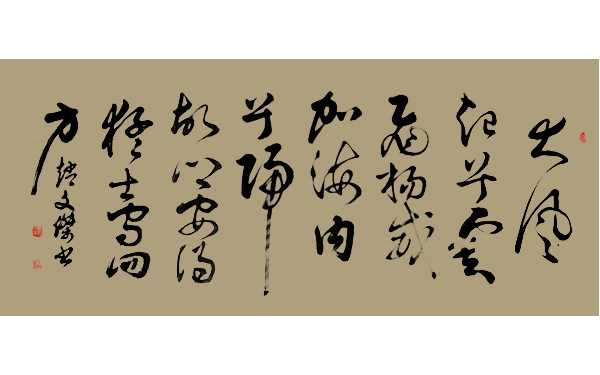 大风
起兮雲
飛揚威
加海内
兮歸
故乡安得
猛士守四
方
文傑书